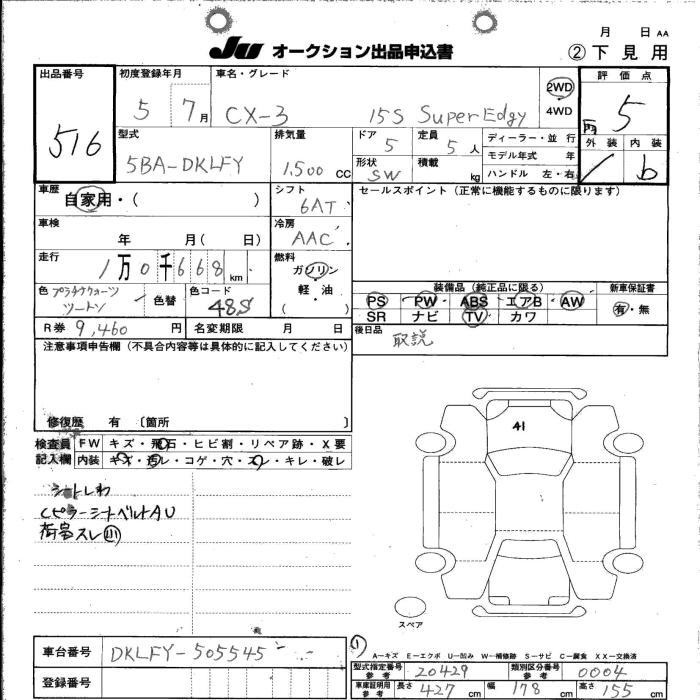 月 日 AA
JU オークション出品申込書 ②下見用
出品番号 初度登録年月 車名・グレード 2WD 評価点
516 5 7月 CX-3 15S Super Edgy 4WD 5
型式 排気量 ドア 定員 ディーラー・並行 外装 内装
5BA-DKLFY 1,500 CC 5 5人 モデル年式 年 b
形状 積載 ハンドル 左・右
SW kg
車歴 自家用・( ) シフト セールスポイント(正常に機能するものに限ります)
6AT
車検 冷房
年 月( 日) AAC
走行 燃料
1万0千668km ガソリン
軽・油
( )
色 色替 色コード 装備品(純正品に限る) 新車保証書
ツートン 48S PS PW ABS エアB AW 有・無
SR ナビ TV カワ
R券 9,460円 名変期限 月 日 後日品
取説
注意事項申告欄(不具合内容等は具体的に記入してください)
修復歴 有 〔箇所 〕
検査員 FW キズ・飛石・ヒビ割・リペア跡・X要
記入欄 内装 キズ・汚レ・コゲ・穴・スレ・キレ・破レ
41
シートしわ
CピラーシートベルトAU
荷室スレ
スペア
車台番号 DKLFY-505545
登録番号
A-キズ E-エクボ U-凹み W-補修跡 S-サビ C-腐食 XX-交換済
型式指定番号 参考 20429 類別区分番号 参考 0004
車庫証明用 参考 長さ 427cm 幅 178cm 高さ 155cm